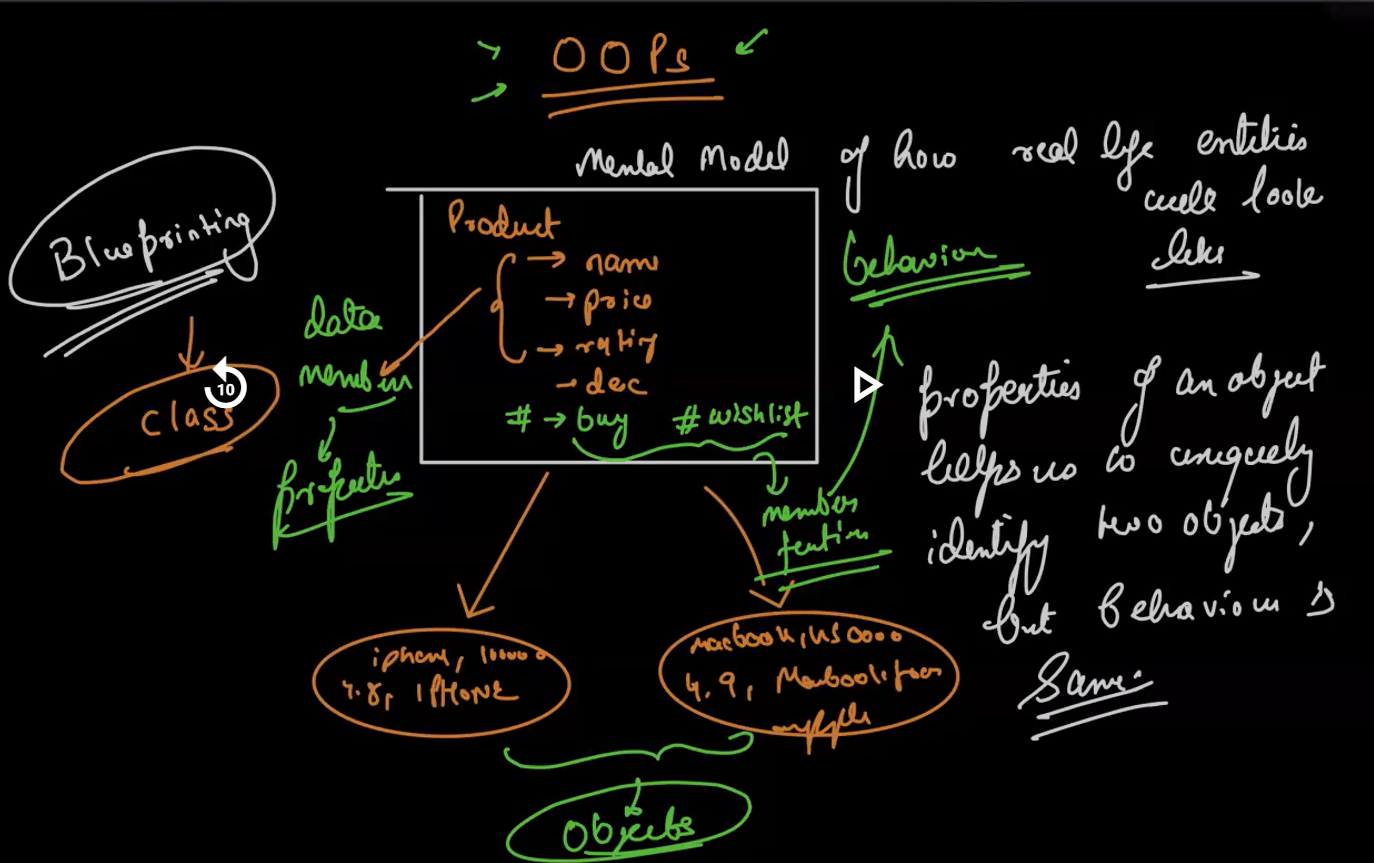 OOPs
Mental Model of how real life entities
will look
like
Blueprinting
class
10
data
members
properties
Product
→ name
→ price
→ rating
→ dec
# → buy # wishlist
behaviour
member
function
properties of an object
helps us to uniquely
identify two objects,
but behaviour is
same.
iphone, 100000
4.8, IPHONE
macbook,
4.9, Macbook from
apple
Objects